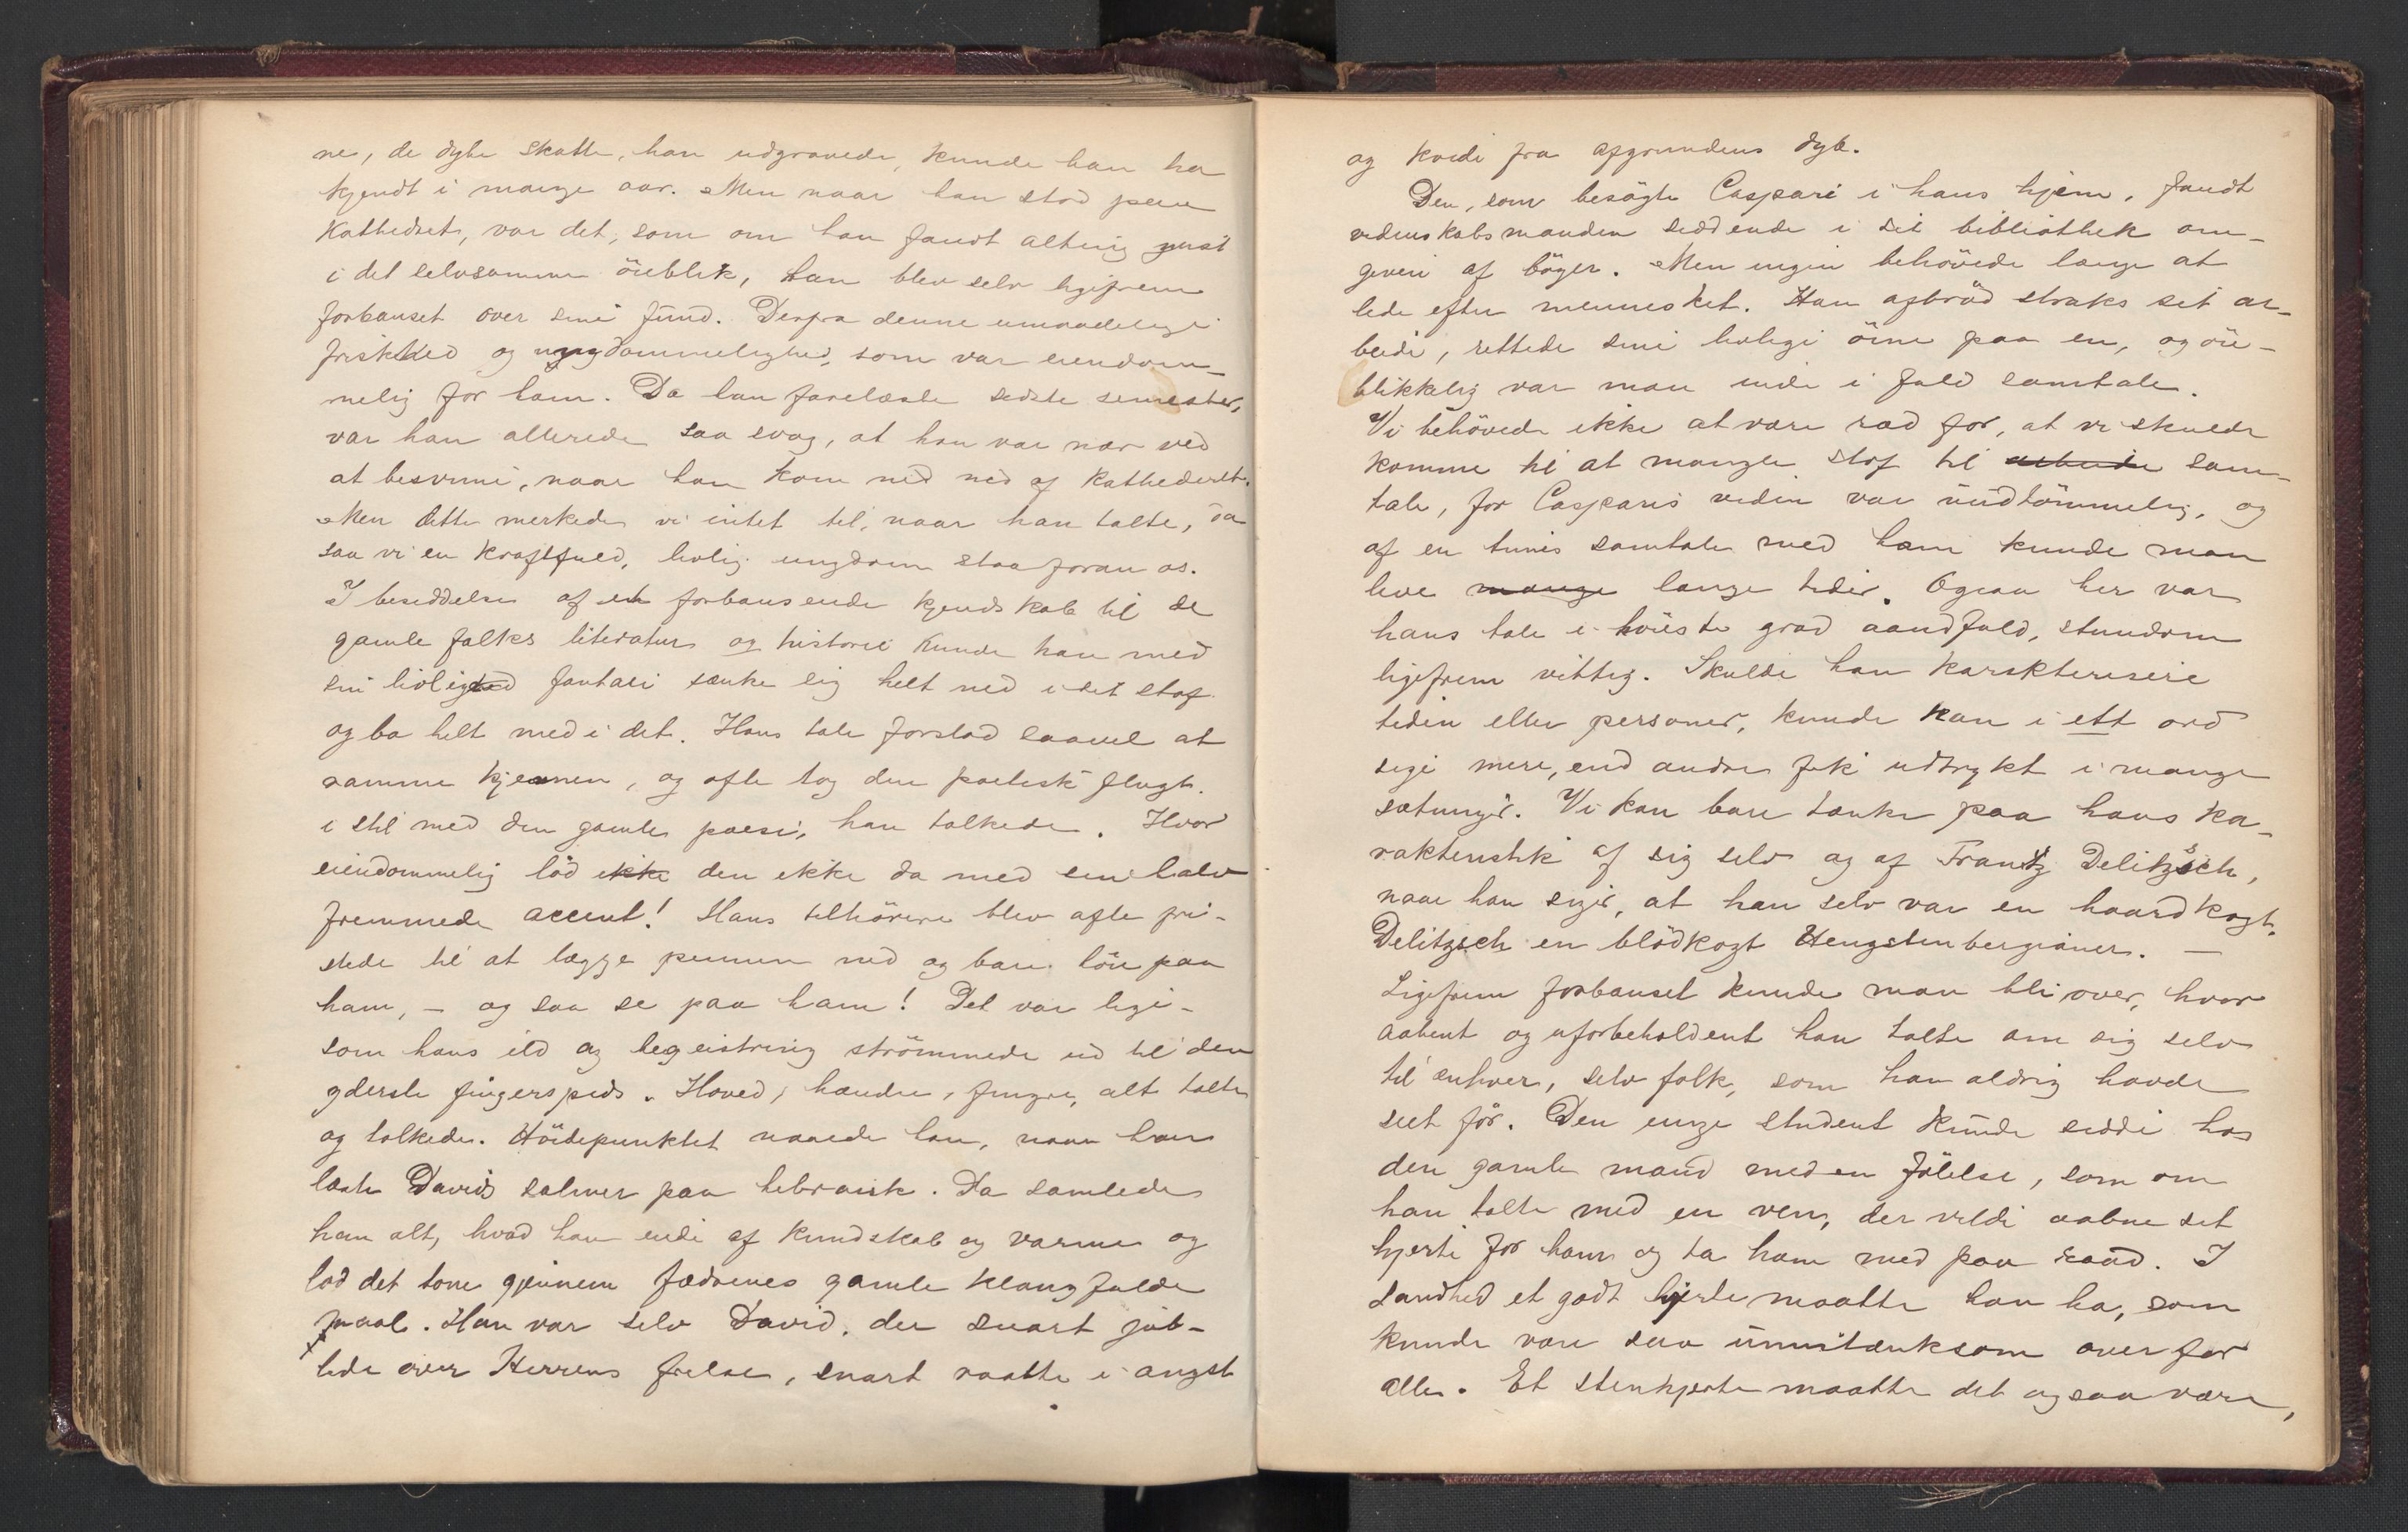 ne, de dybe skatte, han udgravede, kunde han ha
kjendt i mange aar. Men naar han stod paa
Kathedret, var det, som om han fandt alting just
i det selvsamme öieblik, han blev selv ligefrem
forbauset over sine fund. Derfra denne umaadelige
friskhed og ungdommelighed, som var eiendom-
melig for ham. Da han forelæste sidste semester,
var han allerede saa svag, at han var nær ved
at besvime, naar han kom ned ned af Kathederet.
Men dette merkede vi intet til, naar han talte, da
saa vi en kraftfuld, livlig ungdom staa foran os.
I besiddelse af en forbausende kjendskab til de
gamle folks literatur og historie kunde han med
sin livlige fantasi sænke sig helt ned i sit stof
og ha helt med i det. Hans tale forstod saavel at
ramme kjernen, og ofte tog den poetisk flugt
i stil med den gamle poesi, han tolkede. Hvor
eiendommelig lød ikke den ikke da med sin halv
fremmede accent! Hans tilhörere blev ofte fri-
stede til at lægge pennen ned og bare löie paa
ham, – og saa se paa ham! Det var lige-
som hans ild og begeistring strömmede ud til den
yderste fingerspids. Hoved, hænder, fingre, alt talte
og tolkede. Höidepunktet naaede han, naar han
læste Davids salmer paa hebraisk. Da samlede
han alt, hvad han eiede af kundskab og varme og
lod det tone gjennem fædrenes gamle klangfulde
maal. Han var selv David, der snart jub-
lede over Herrens frelse, snart raabte i angst
og kvide fra afgrundens dyb.
Den, som besögte Caspari i hans hjem, fandt
videnskabsmanden siddende i sit bibliothek om-
given af böger. Men ingen behövede længe at
lede efter mennesket. Han afbröd straks sit ar-
beide, rettede sine livlige öine paa en, og öie-
blikkelig var man inde i fuld samtale.
Vi behövede ikke at være ræd for, at vi skulde
komme til at mangle stof til arbeide sam-
tale, for Casparis viden var uudtömmelig, og
af en times samtale med ham kunde man
leve mange lange tider. Ogsaa her var
hans tale i höieste grad aandfuld, stundom
ligefrem vittig. Skulde han karakterisere
tiden eller personer, kunde han i ett ord
sige mere, end andre fik udtrykt i mange
sætninger. Vi kan bare tænke paa hans ka-
rakteristik af sig selv og af Frantz Delitzsch,
naar han siger, at han selv var en haardkogt,
Delitzsch en blödkogt Hengstenbergianer. —
Ligefrem forbauset kunde man bli over, hvor
aabent og uforbeholdent han talte om sig selv
til enhver, selv folk, som han aldrig havde
seet för. Den unge student kunde sidde hos
den gamle mand med en fölelse, som om
han talte med en ven, der vilde aabne sit
hjerte for ham og ta ham med paa raad. I
sandhed et godt hjerte maatte han ha, som
kunde være saa umistænksom over for
alle. Et stenhjerte maatte det ogsaa være,